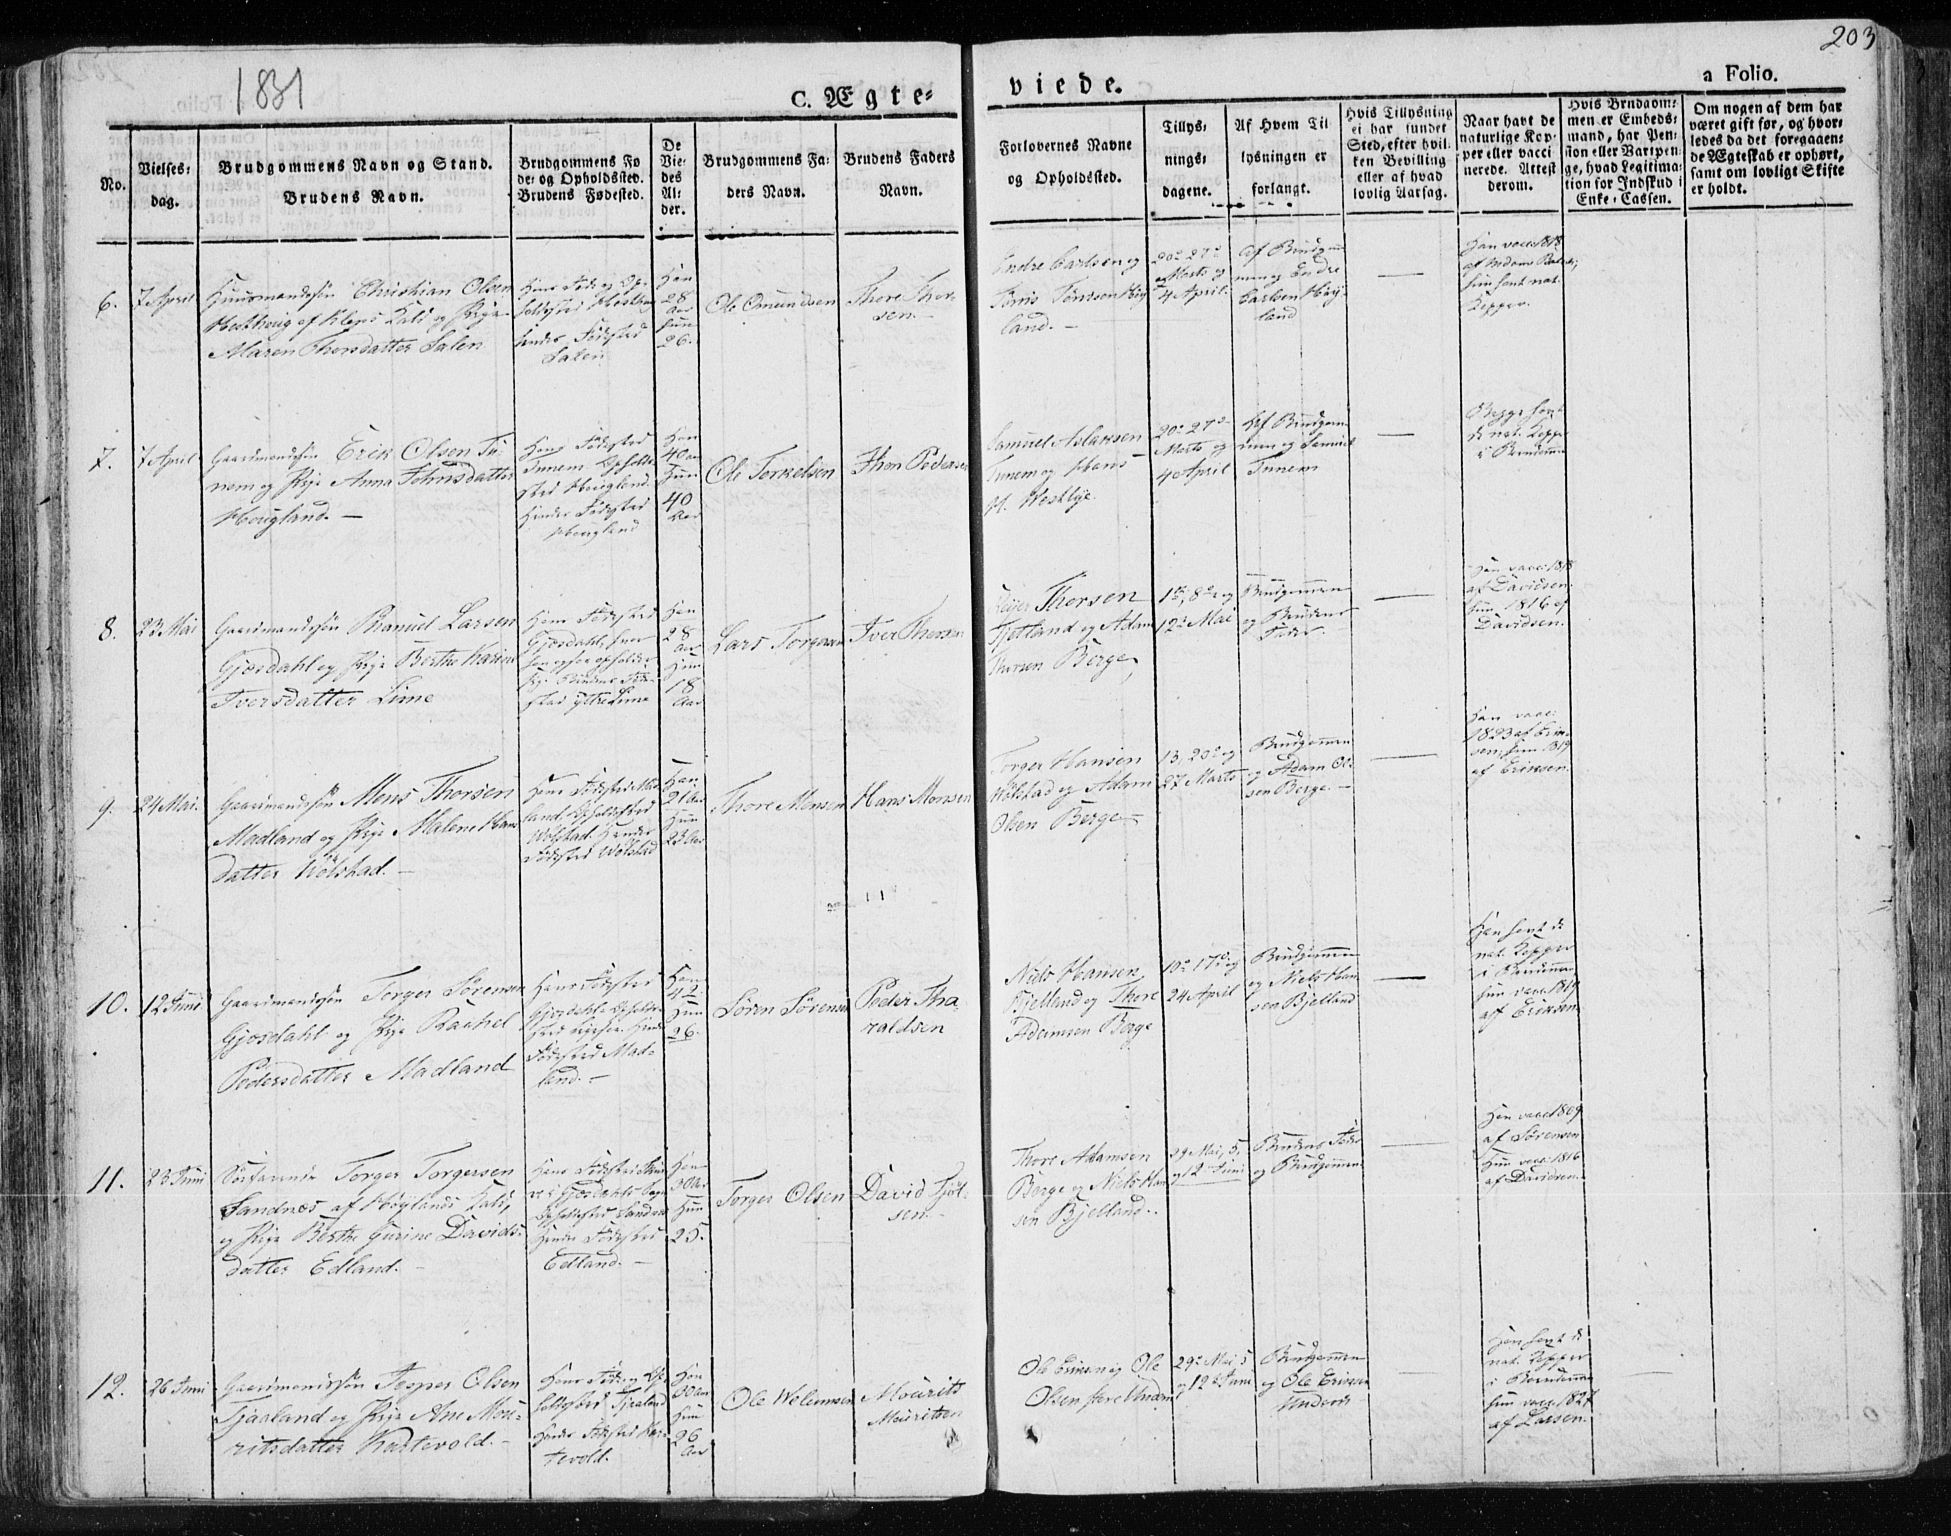 203
1831
C. Ægte-
viede.
a Folio.
No.
Vielses-
dag.
Brudgommens Navn og Stand.
Brudens Navn.
Brudgommens Fø
de- og Opholdssted.
Brudens Fødested.
De
Vie-
des
Al-
der.
Brudgommens Fa-
ders Navn.
Brudens Faders
Navn.
Forlovernes Navne
og Opholdssted.
Tillys-
nings-
dagene.
Af Hvem Til
lysningen er
forlangt.
Hvis Tillysning
ei har fundet
Sted, efter hvil-
ken Bevilling
eller af hvad
lovlig Aarsag.
Naar havt de
naturlige Kop-
per eller vacci
nerede. Attest
derom.
Hvis Brudgom-
men er Embeds-
mand, har Pen-
sion eller Vartpen-
ge, hvad Legitima-
tion for Indskud i
Enke-Cassen.
Om nogen af dem har
været gift før, og hvor-
ledes da det foregaaen-
de Ægteskab er ophørt,
samt om lovligt Skifte
er holdt.
6.
7 April
Huusmandssøn Christian Olsen
af Kleps Kald og Pige
Maren Thorsdatter Salen
Hans Føde og Op-
holdssted
Hendes Fødested
Salen
Han
28
Aar
Hun
26.
Ole Omundsen
Thore Thor-
sen.
Endre Carlsen og
Tønnessen Høy
land.
20de 27de
Marts og
4 April.
Af Brudgom
men og Endre
Carlsen Høy-
land
Han vacc. 1818
af
hun havt nat.
Kopper.
7.
7 April
Gaardmandssøn Erik Olsen Tu-
nem og Pige Anna Johnsdatter
Hougland.
Hans Fødested
Tunem Opholds-
sted Hougland.
Hendes Fødested
Hougland
Han
40 Aar
Hun
40
Aar
Ole Torkelsen
Jhon Pedersen
Samuel Aslaksen
Tunem og Hans
H. Westlye.
20de 27de
Marts og
4 April
Af Brudgom
men og Samuel
Tunem
Begge havt
de nat. Kopper
i Barndommen
8.
23 Mai
Gaardmandssøn Phanuel Larsen
Gjosdahl og Pige Berthe Karine
Iversdatter Lime
Hans Fødested
Gjosdahl, hvor
han ogsaa opholder
sig. Brudens Føde-
sted Ytre Lime
Han
28
Aar
Hun
18
Aar
Lars Torgersen
Iver Thorsen
Thorsen
Tjotland og Adam
Thorsen Berge,
1ste, 8de og
12te Mai
Brudgommen
og Brudens
Fader
Han vacc. 1818
af Davidsen.
Hun 1816 af
Davidsen.
9.
24 Mai.
Gaardmandssøn Mons Thorsen
Madland og Pige Malene Hans
datter Wølstad.
Hans Fødested Mad
land, Opholdssted
Wølstad. Hendes
Fødested Wølstad
Han
21 Aar
Hun
23 Aar
Thore Monsen
Hans Monsen
Torger Hansen
Wølstad og Adam
Olsen Berge
13, 20de og
27 Marts
Brudgommen
og Adam Ol-
sen Berge.
Han vacc.
1823 af Erik-
sen, hun 1819
af Eriksen.
10.
12 Juni
Gaardmandssøn Torger Sørensen
Gjosdahl og Pige Rachel
Pedersdatter Madland
Hans Fødested
Gjosdahl Opholds-
sted ligesaa. Hendes
Fødested Mad-
land.
Han
42
Hun
26.
Søren Sørensen
Peder Tha-
raldsen
Niels Hansen
Bjelland og Thore
Adamsen Berge
10de 17de og
24 April
Brudgommen
og Niels Han
sen Bjelland
Han havt de
nat. Kopper
i Barndommen
hun vacc. 1819
af Eriksen.
11.
23 Juni
Torger Torgersen
Sandnes af Høylands Kald,
og Pige Berthe Gurine Davids-
datter Edland.
Hans Fødested
i Gjosdahls Sogn
Opholdssted Sandnes
Hendes Fødested
Edland.
Han
30 Aar
Hun
25.
Torger Olsen
David Tjøl-
sen.
Thore Adamsen
Berge og Niels Han
sen Bjelland.
29 Mai, 5,
og 12 Juni
Brudens Fader
og Brudgommen
Han vacc. 1809
af Sørensen
Hun vacc. 1816
af Davidsen.
12.
26 Juni
Gaardmandssøn Jesper Olsen
Tjaaland og Pige Ane Mou-
ritsdatter Kartevold.
Hans Føde og Op-
holdssted Tjaaland
Hendes Fødested Kar-
tevold.
Han
30 Aar
Hun
26
Aar
Ole Welumsen
Mourits
Mouritsen
Ole Eriksen og Ole
Olsen
29de Mai, 5
og 12te Juni
Brudgommen
og Ole Eriksen
Han havt de
nat. Kopper
i Barndommen
hun vacc. 1827
af Larsen.